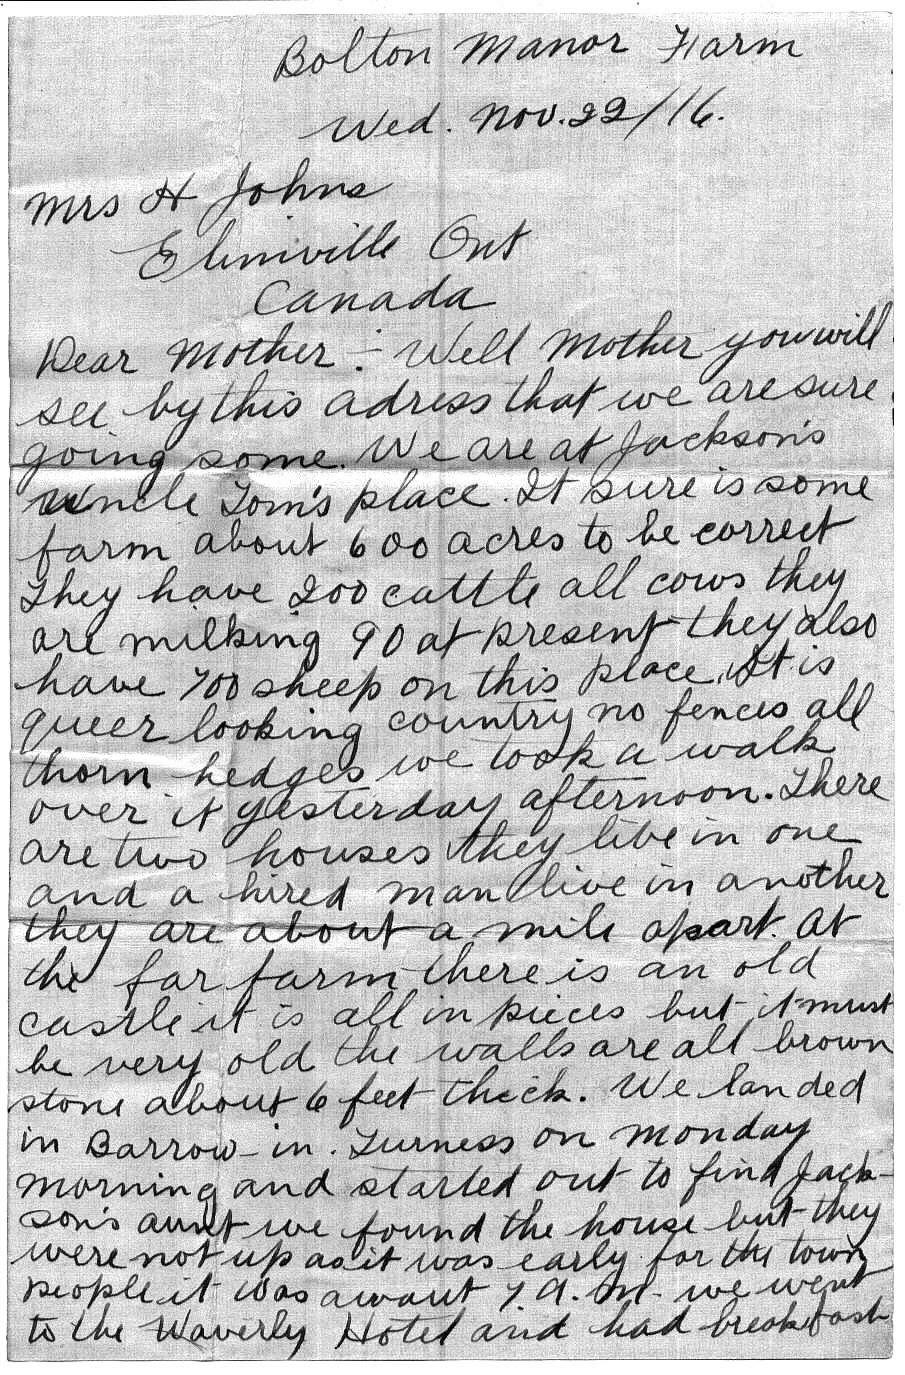 Bolton Manor Farm
Wed. Nov. 22/16.
Mrs H Johns
Elimville Ont
Canada
Dear Mother :- Well Mother you will
see by this adress that we are sure
going some. We are at Jackson's
uncle Tom's place. It sure is some
farm about 600 acres to be correct
They have 200 cattle all cows they
are milking 90 at present they also
have 700 sheep on this place. It is
queer looking country no fences all
thorn hedges we took a walk
over it yesterday afternoon. There
are two houses they live in one
and a hired man live in another
they are about a mile apart. At
the far farm there is an old
castle it is all in pieces but it must
be very old the walls are all brown
stone about 6 feet thick. We landed
in Barrow-in-Furness on Monday
morning and started out to find Jack-
son's aunt we found the house but they
were not up as it was early for the town
people it was awaut 7 A.M. we went
to the Waverly Hotel and had breakfast